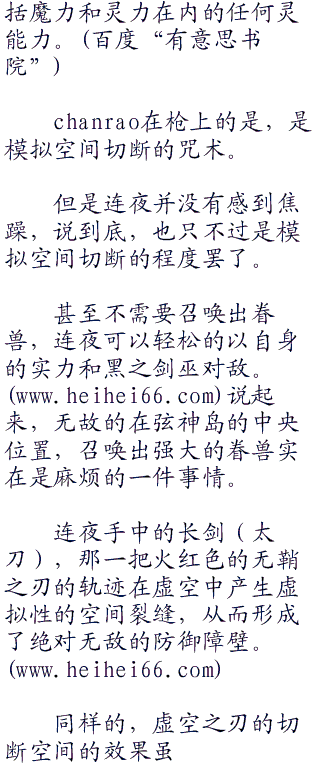 括魔力和灵力在内的任何灵
能力。(百度“有意思书
院”)
chanrao在枪上的是，是
模拟空间切断的咒术。
但是连夜并没有感到焦
躁，说到底，也只不过是模
拟空间切断的程度罢了。
甚至不需要召唤出眷
兽，连夜可以轻松的以自身
的实力和黑之剑巫对敌。
(www.heihei66.com)说起
来，无故的在弦神岛的中央
位置，召唤出强大的眷兽实
在是麻烦的一件事情。
连夜手中的长剑（太
刀），那一把火红色的无鞘
之刃的轨迹在虚空中产生虚
拟性的空间裂缝，从而形成
了绝对无敌的防御障壁。
(www.heihei66.com)
同样的，虚空之刃的切
断空间的效果虽